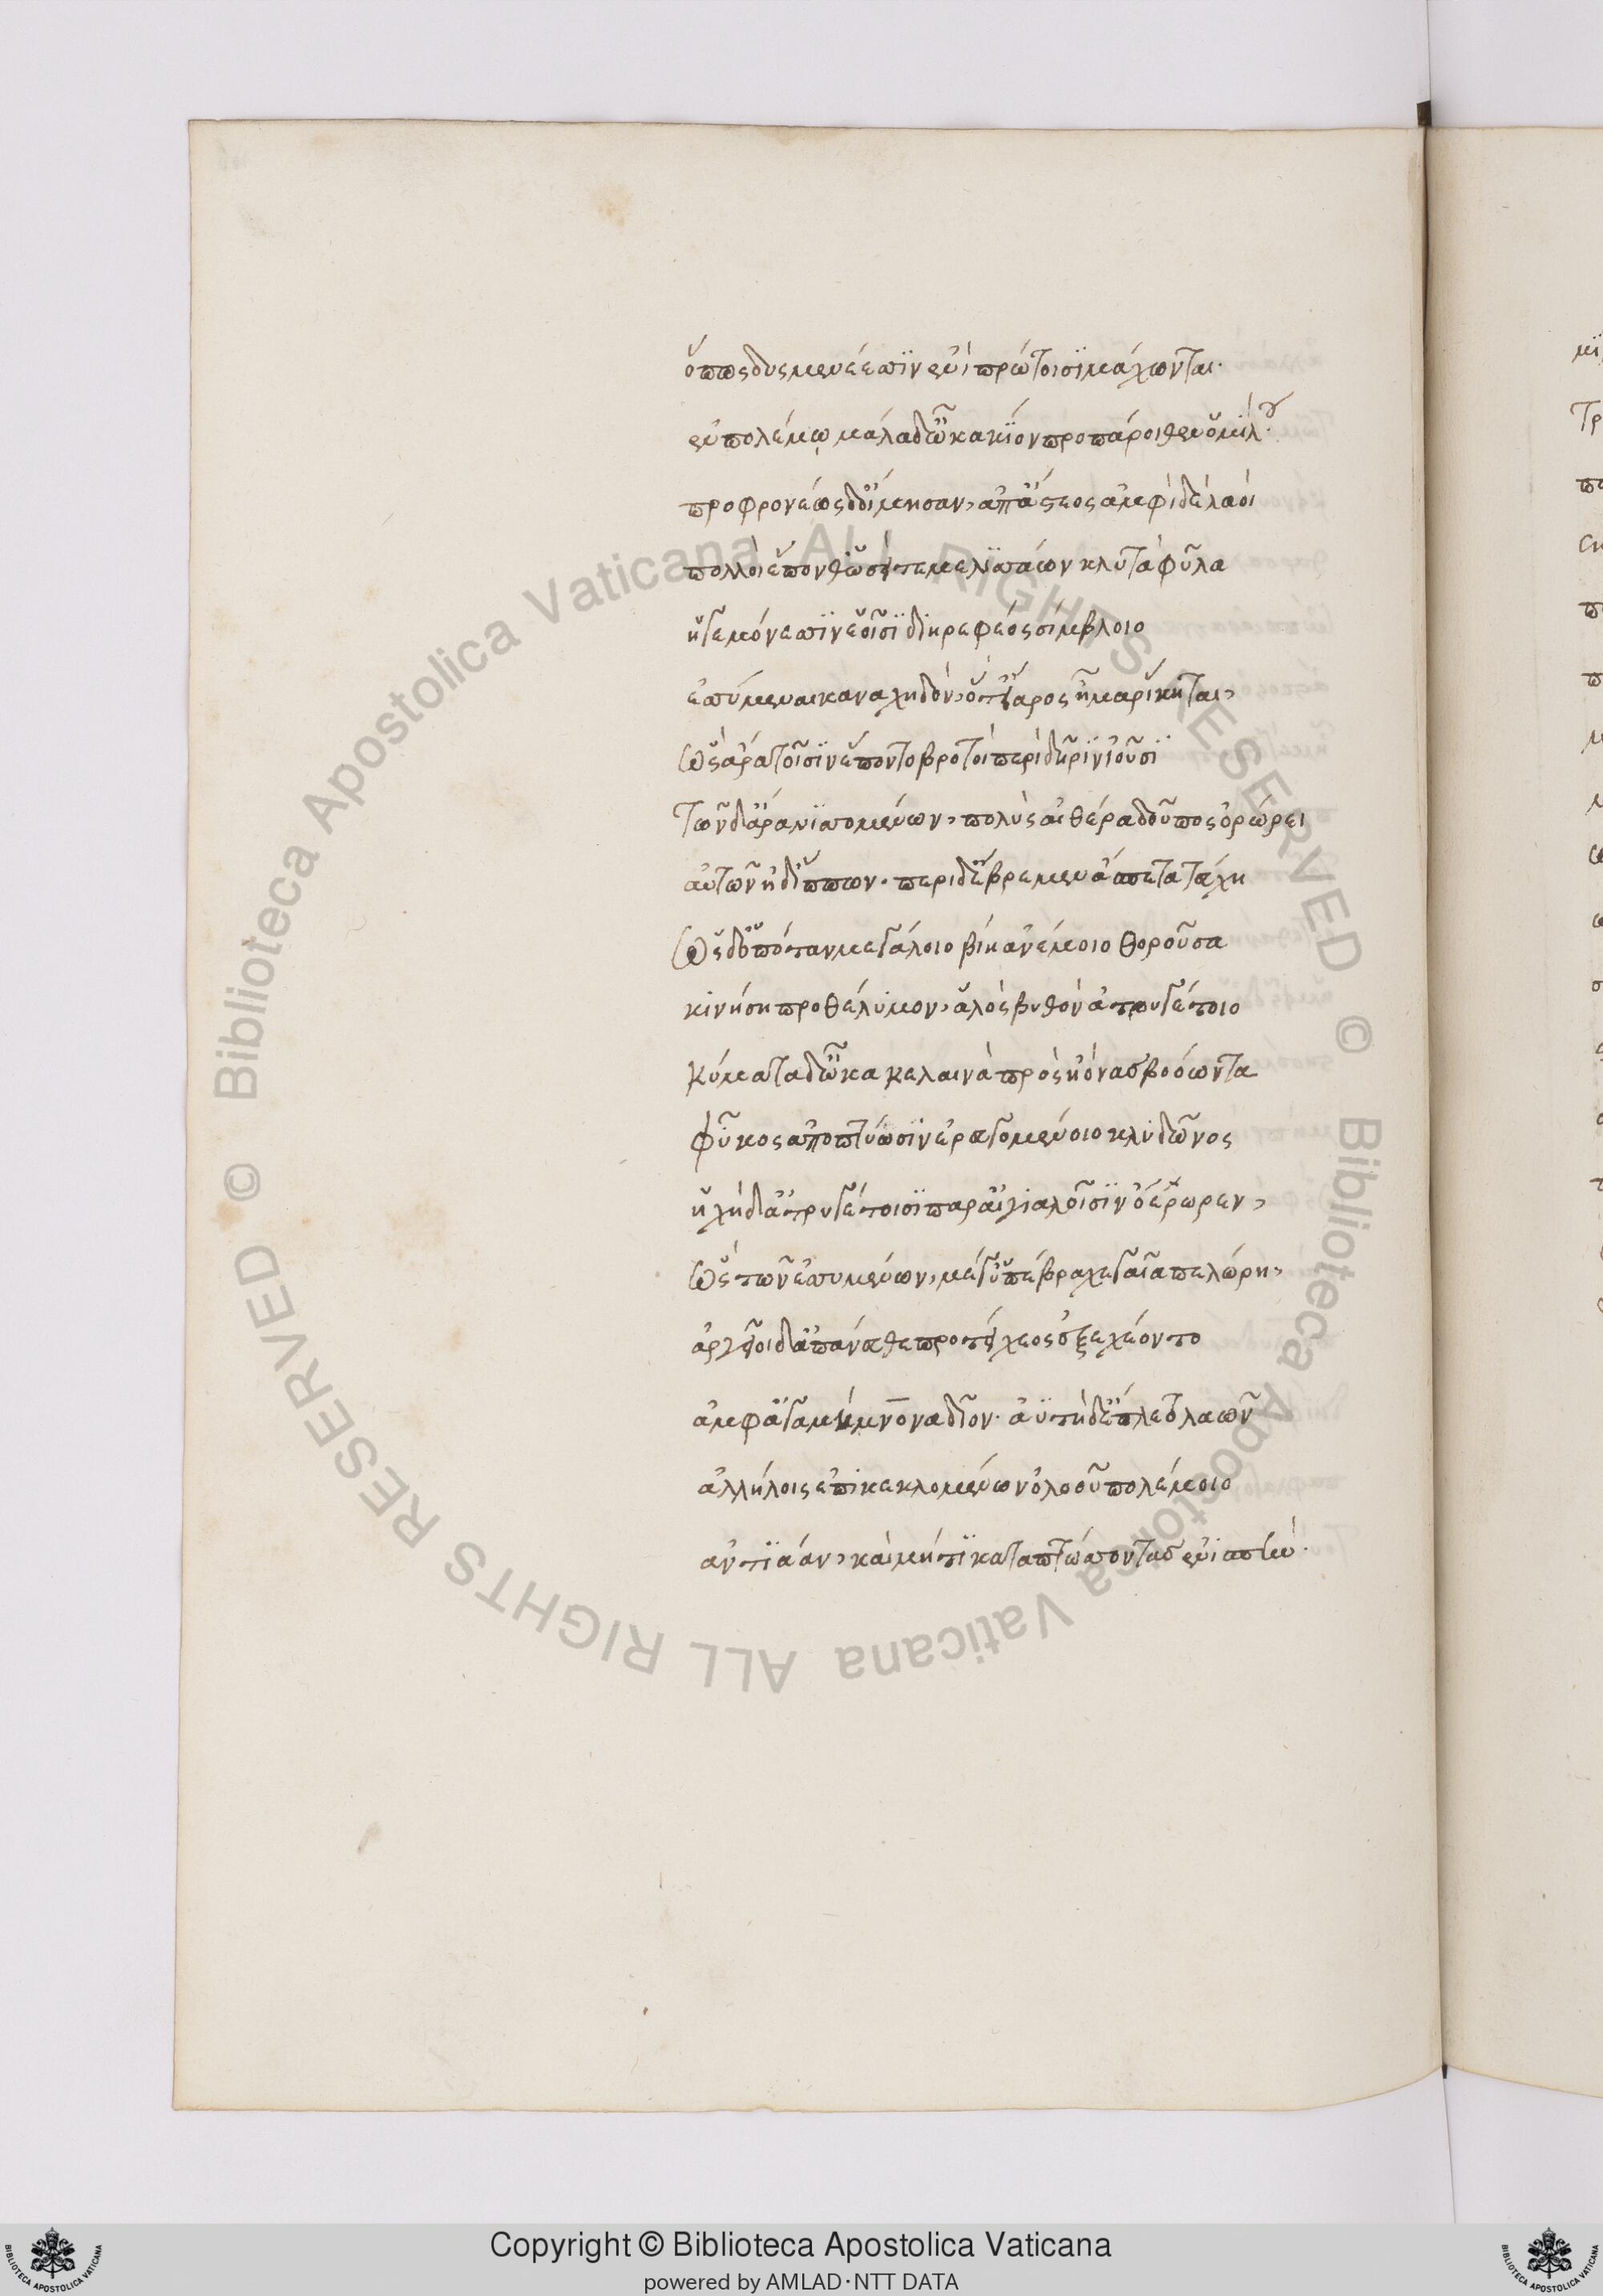 ὅππως δυσμενέεσσιν ἐνὶ πρώτοισι μάχωνται.
ἐν πολέμῳ μάλα δ' ὦκα κίον προπάροιθεν ὁμίλου.
προφρονέως δ' οἴμησαν, ἀπ' ἄστεος ἀμφὶ δὲ λαοὶ
πολλοὶ ἕπονθ' ὡσεί τε μελισσάων κλυτὰ φῦλα
ἡγεμόνεσσιν ἑοῖσι διηρεφέος σίμβλοιο
ἐσσύμεναι καναχηδὸν, ὅτ' εἴαρος ἦμαρ ἵκηται,
ὣς ἄρα τοῖσιν ἕποντο βροτοὶ περὶ δῆριν ἰοῦσι
τῶν δ' ἄρα νισσομένων, πολὺς αἰθέρα δοῦπος ὀρώρει
αὐτῶν ἠδ' ἵππων. περὶ δ' ἔβρεμεν ἄσπετα τεύχη
ὡς δ' ὁπόταν μεγάλοιο βίη ἀνέμοιο θοροῦσα
κινήσῃ προθέλυμον, ἁλὸς βυθὸν ἀτρυγέτοιο
κύματα δ' ὦκα κελαινὰ πρὸς ἠόνας βοόωντα
φῦκος ἀποπτύωσιν ἐρευγομένοιο κλύδωνος
ἠχὴ δ' ἀτρυγέτοισι παρ' αἰγιαλοῖσιν ὄρωρεν,
ὣς τῶν ἐσσυμένων, μέγ' ὑπέβραχε γαῖα πελώρη,
ἀργεῖοι δ' ἀπάνευθε πρὸ τείχεος ἐξεχέοντο
ἀμφ' ἀγαμέμνονα δῖον. ἀϋτὴ δ' ἔπλετο λαῶν
ἀλλήλοις ἐπικεκλομένων ὀλοοῦ πολέμοιο
ἀντιάαν, καὶ μή τι καταπτώσσοντας